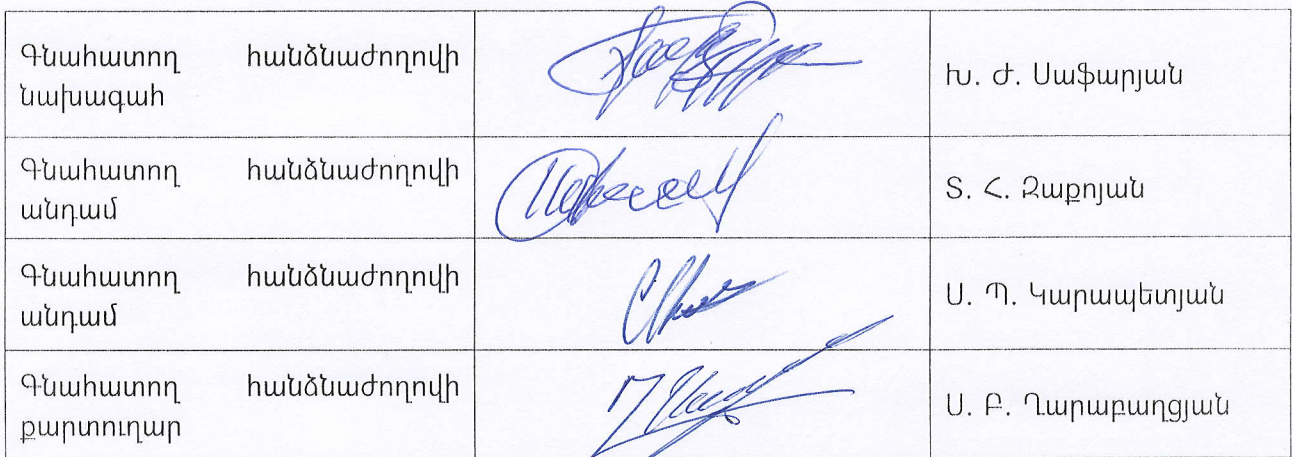 Գնահատող հանձնաժողովի
նախագահ
Խ. Ժ. Սաֆարյան
Գնահատող հանձնաժողովի
անդամ
Տ. Հ. Զաքոյան
Գնահատող հանձնաժողովի
անդամ
Ս. Պ. Կարապետյան
Գնահատող հանձնաժողովի
քարտուղար
Ս. Բ. Ղարաբաղցյան